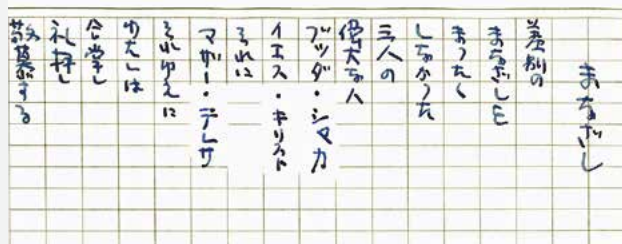 まなざし
差別の
まなざしを
まったく
しなかった
三人の
偉大な人
ブッダ・シャカ
イエス・キリスト
それに
マザー・テレサ
それゆえに
わたしは
合掌し
礼拝し
敬慕する